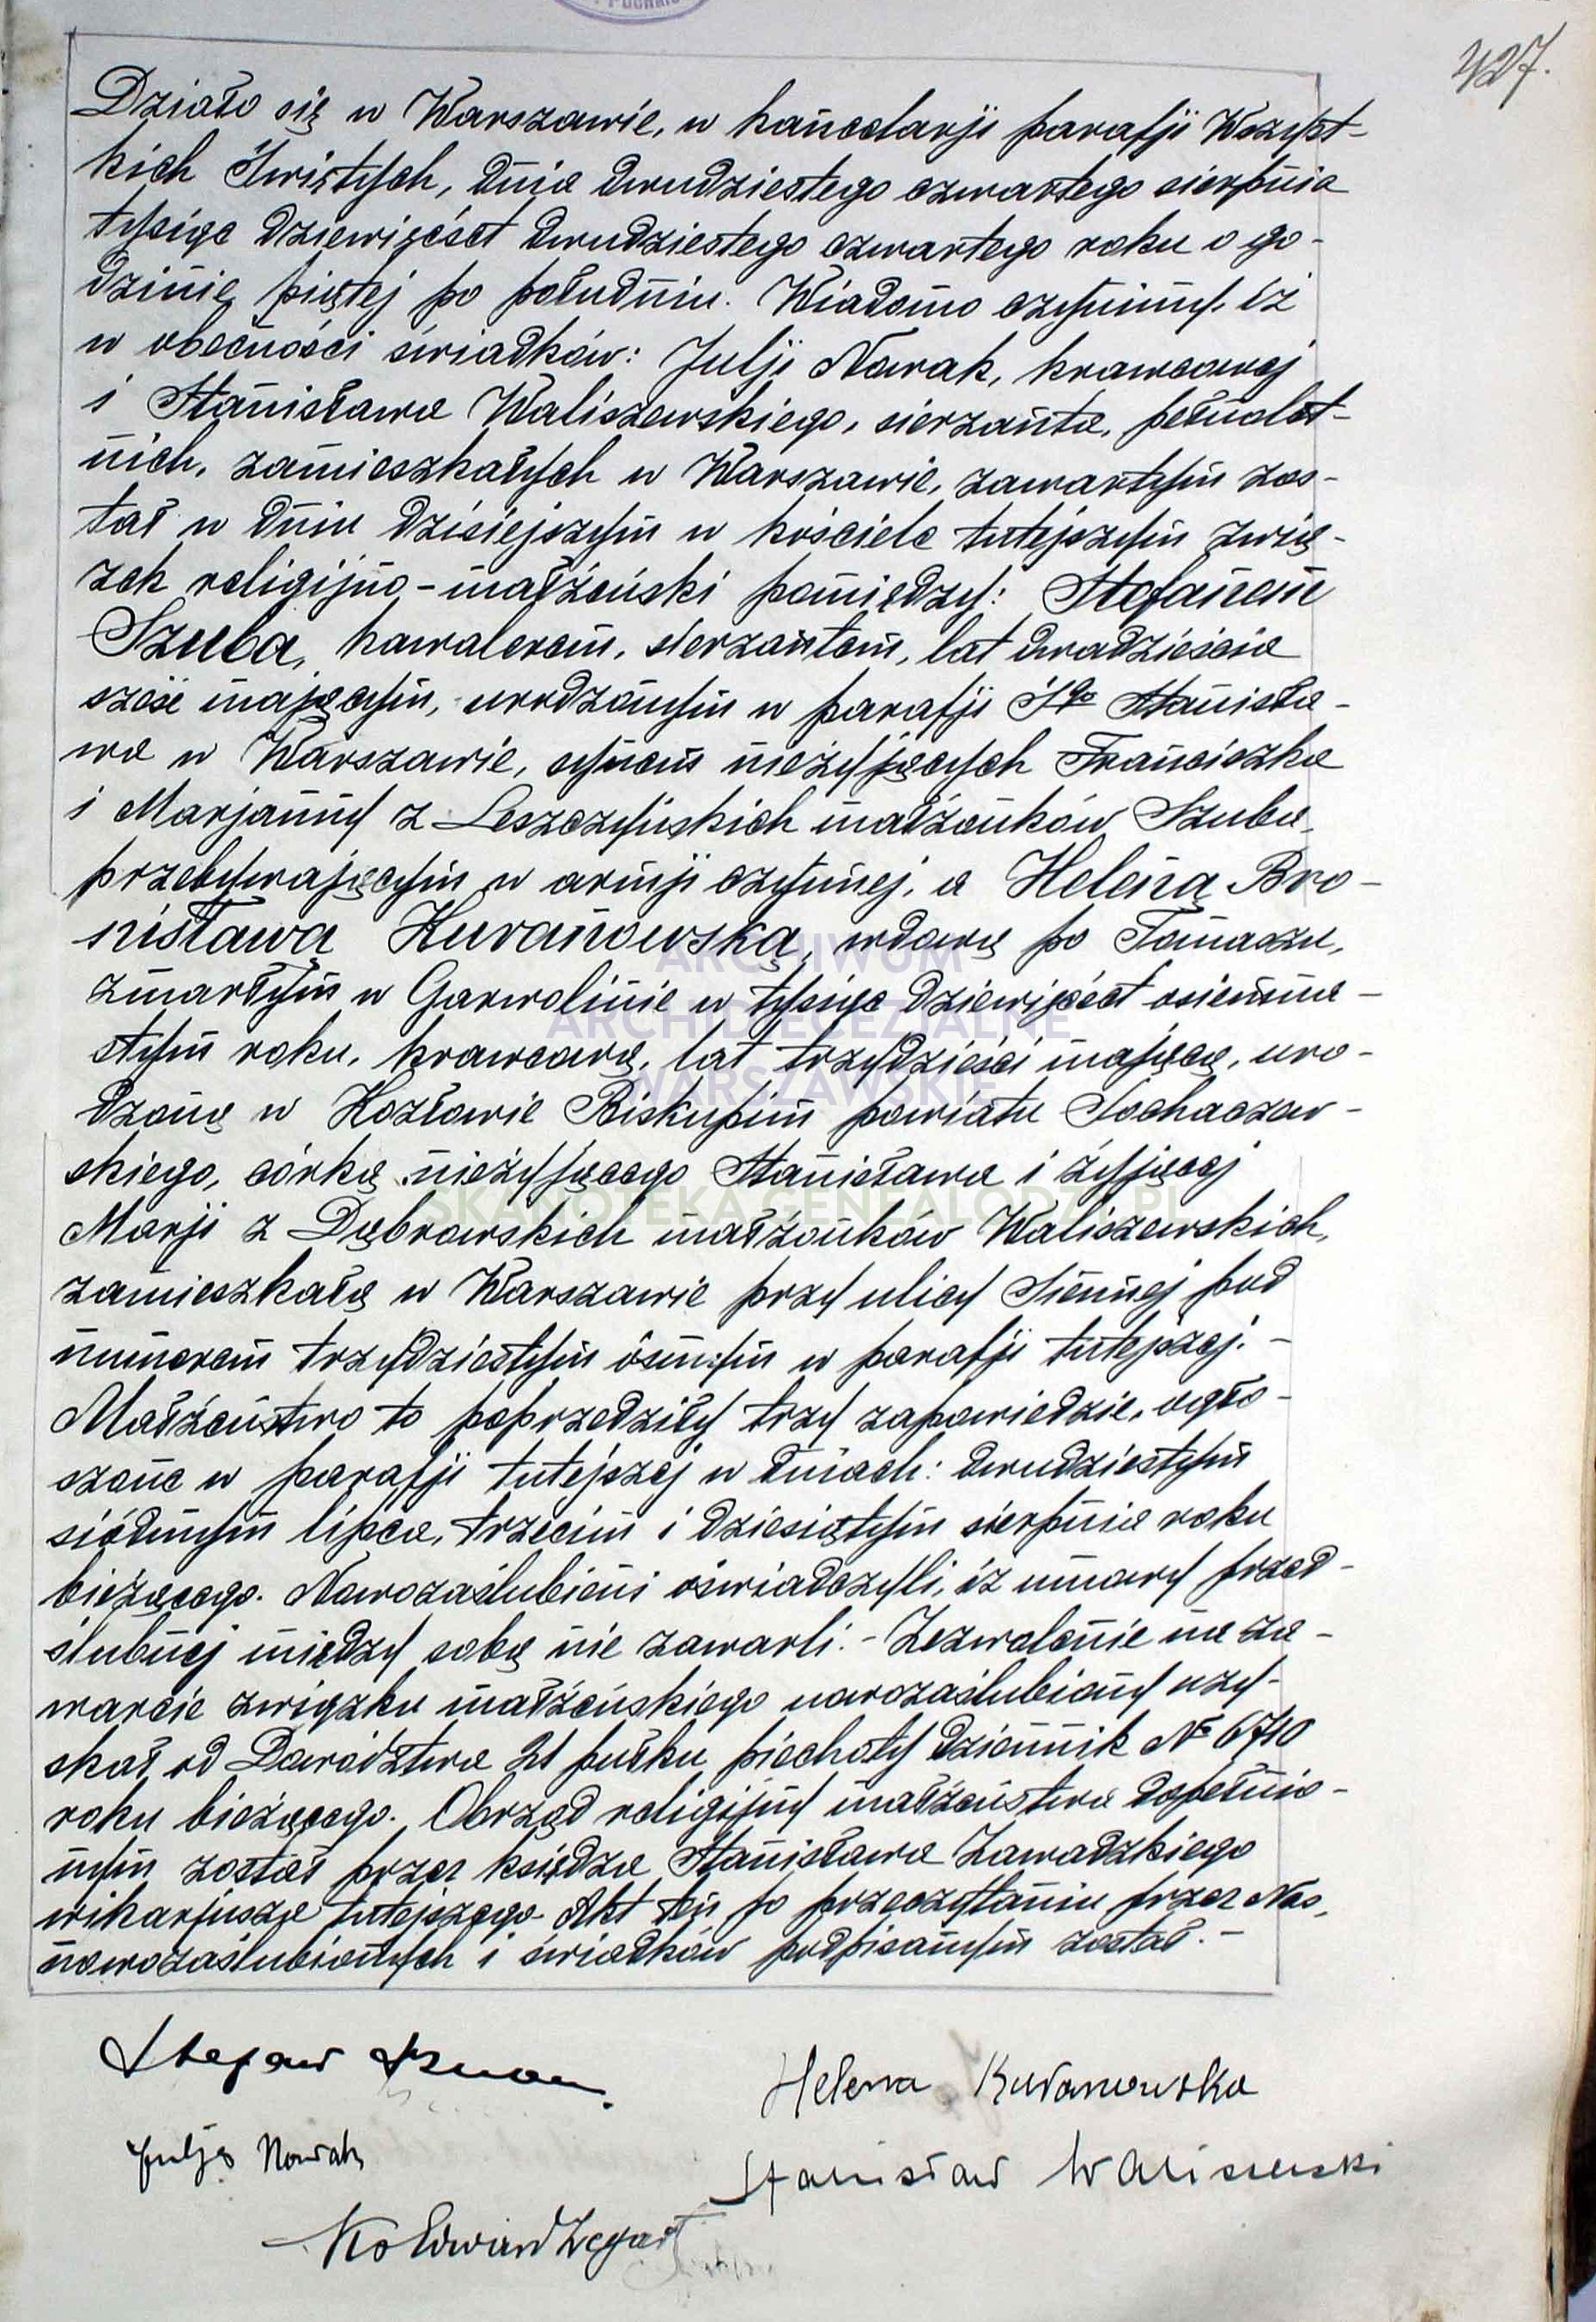 427.
Działo się w Warszawie, w kancelarji parafji Wszyst-
kich Świętych, dnia dwudziestego czwartego sierpnia
tysiąc dziewięćset dwudziestego czwartego roku o go-
dzinie piątej po południu. Wiadomo czynimy, iż
w obecności świadków: Julji Nowak, krawcowej
i Stanisława Waliszewskiego, sierżanta, pełnolet-
nich, zamieszkałych w Warszawie, zawartym zos-
tał w dniu dzisiejszym w kościele tutejszym zwią-
zek religijno-małżeński pomiędzy: Stefanem
Szuba, kawalerem, sierżantem, lat dwadzieścia
sześć mającym, urodzonym w parafji Śgo Stanisła-
wa w Warszawie, synem nieżyjących Franciszka
i Marjanny z Leszczyńskich małżonków Szuba,
przebywającym w armji czynnej, a Heleną Bro-
nisławą Kuranowską, wdową po Tomaszu,
zmarłym w Garwolinie w tysiąc dziewięćset osiemna-
stym roku, krawcową, lat trzydzieści mającą, uro-
dzoną w Kozłowie Biskupim powiatu Sochaczew-
skiego, córką nieżyjącego Stanisława i żyjącej
Marji z Dąbrowskich małżonków Waliszewskich,
zamieszkałą w Warszawie przy ulicy Siennej pod
numerem trzydziestym ósmym w parafji tutejszej. -
Małżeństwo to poprzedziły trzy zapowiedzie, ogło-
szone w parafji tutejszej w dniach: dwudziestym
siódmym lipca, trzecim i dziesiątym sierpnia roku
bieżącego. Nowozaślubieni oświadczyli, iż umowy przed-
ślubnej między sobą nie zawarli. - Zezwolenie na za-
warcie związku małżeńskiego nowozaślubiony uzy-
skał od Dowództwa 21 pułku piechoty dziennik № 6710
roku bieżącego. Obrząd religijny małżeństwa dopełnio-
nym został przez księdza Stanisława Zawadzkiego
wikarjusza tutejszego. Akt ten po przeczytaniu przez Nas,
nowozaślubionych i świadków podpisanym został. -
Stefan Szuba.
Helena Kuranowska
Julja Nowak
Stanisław Waliszewski
ARCHIWUM
ARCHIDIECEZJALNE
WARSZAWSKIE
SKANOTEKA.GENEALODZY.PL